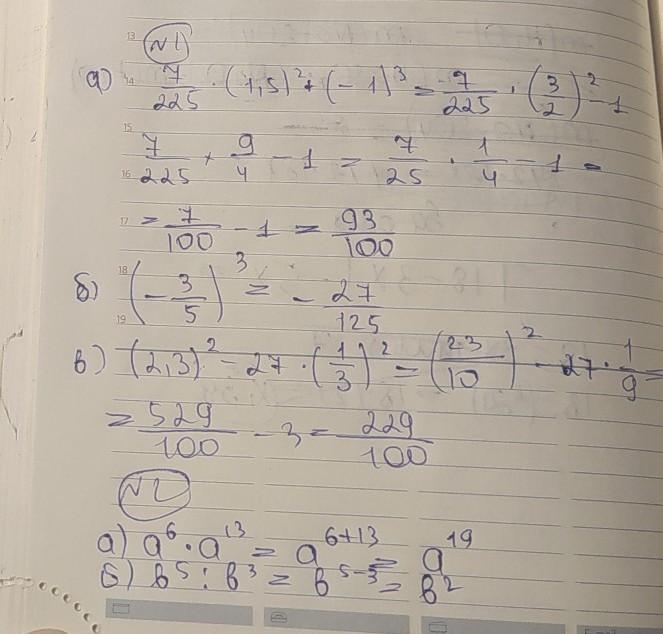 13
N1
14
а) 7/225 · (1,5)² + (-1)³ = 7/225 · (3/2)² - 1
15
7/225 · 9/4 - 1 = 7/25 · 1/4 - 1 =
16
17
= 7/100 - 1 = 93/100
18
б) (-3/5)³ = - 27/125
19
в) (2,3)² - 27 · (1/3)² = (23/10)² - 27 · 1/9 =
= 529/100 - 3 = 229/100
N2
а) a⁶ · a¹³ = a⁶⁺¹³ = a¹⁹
б) b⁵ : b³ = b⁵⁻³ = b²